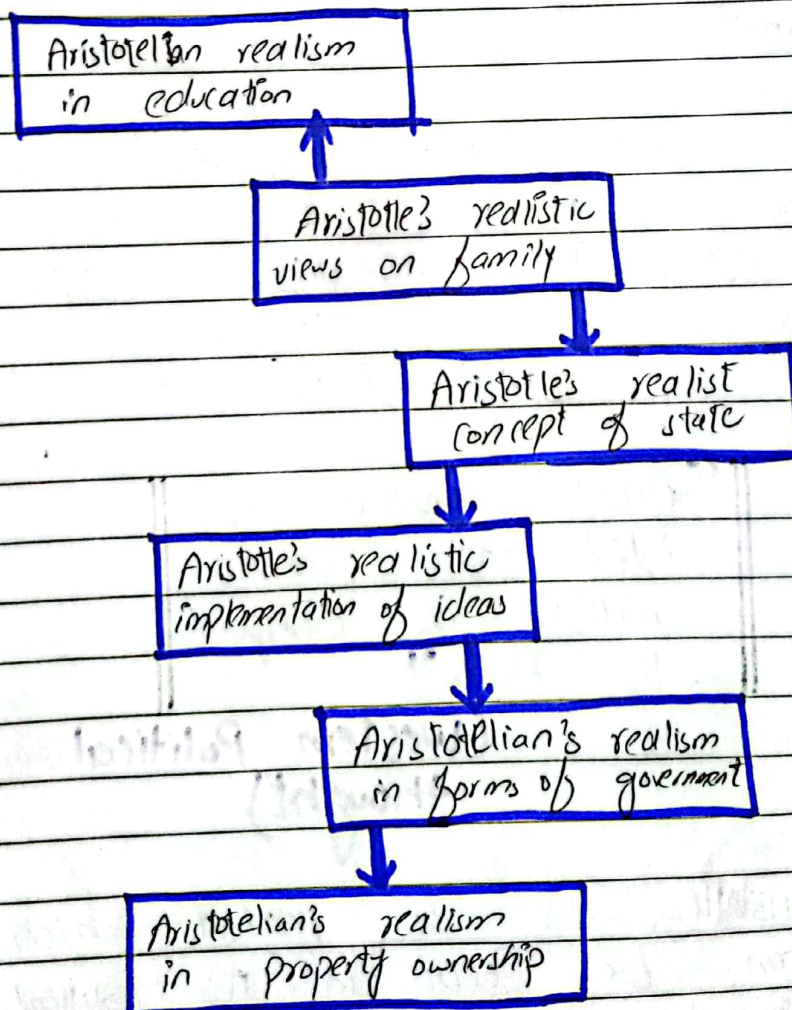 Aristotelian realism
in education
Aristotle's realistic
views on family
Aristotle's realist
concept of state
Aristotle's realistic
implementation of ideas
Aristotelian's realism
in forms of government
Aristotelian's realism
in property ownership